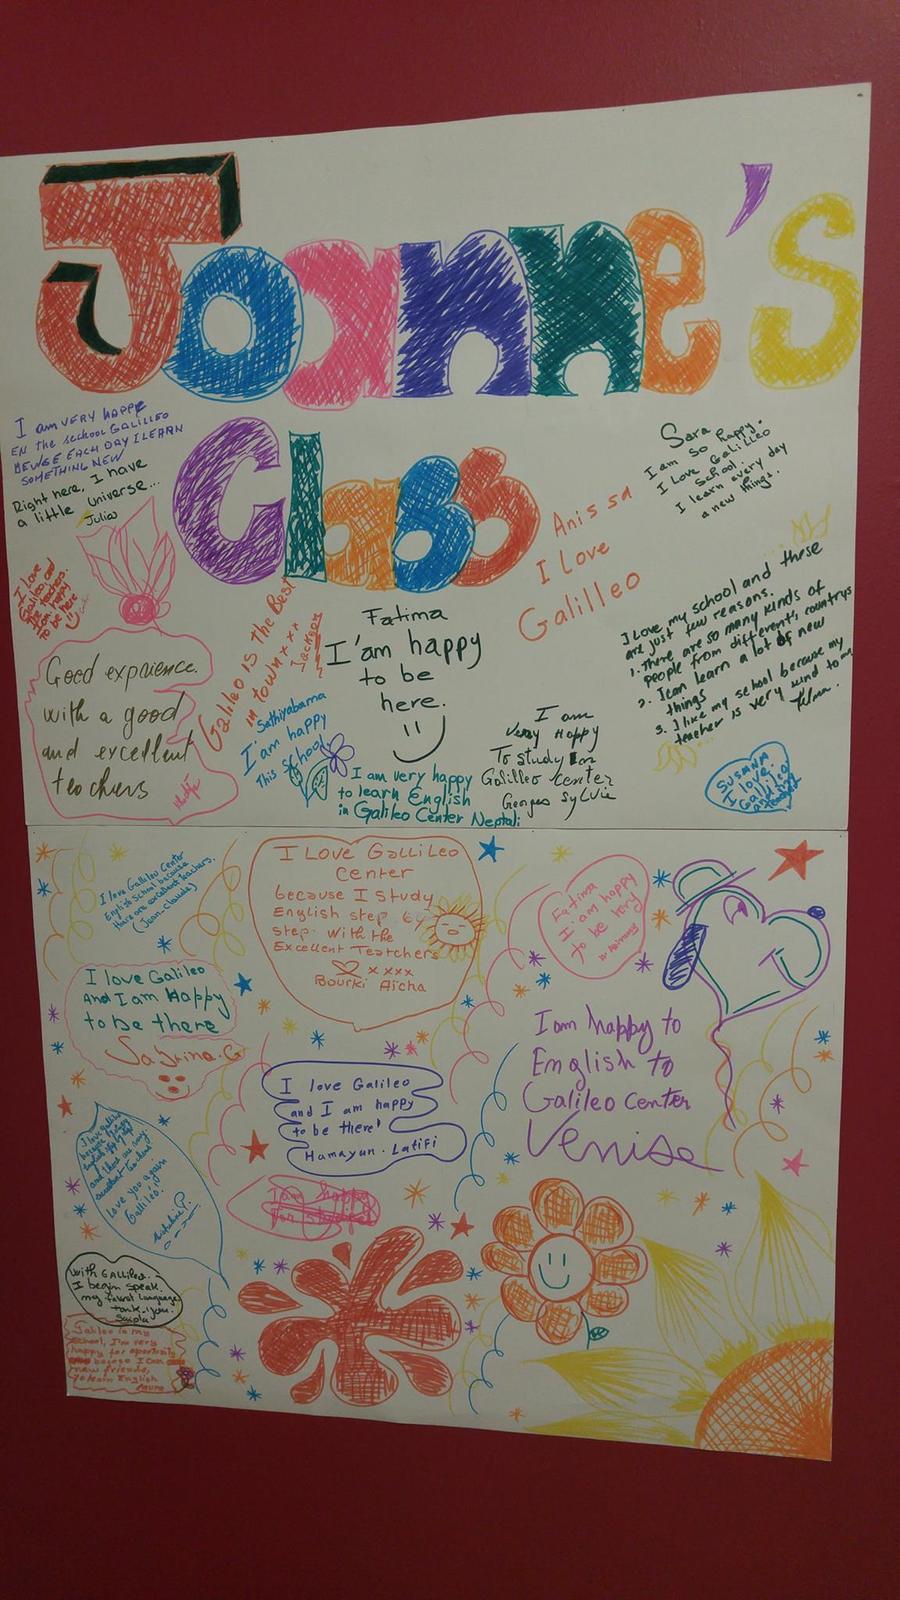 Joanne's
Class
I am VERY HAPPE
EN the school GALILLEO
BEWSE EACH DAY I LEARN
SOMETHING NEW
Right here, I have
a little universe...
Julia
Sara
I am so happy.
I Love Galilleo
School.
I learn every day
a new things.
Anissa
I love
Galilleo
I Love
Galileo and
the teachers.
happy
to be here
Good exprience
with a good
and excellent
teachers
Galileo is the Best
in town xxx
Jackson
Fatima
I'am happy
to be
here.
Sathiyabama
I'am happy
This School
I am very happy
to learn English
in Galileo Center Neptali
I am
Very Happy
To study In
Galilleo Center
Georges Sylvie
I Love my school and these
are just few reasons.
1. There are so many kinds of
people from different countrys
2. I can learn a lot of new
things
3. I like my school because my
teacher is very kind to me
SUSANA
I love
Galileo
and
teacher
I love Gallileo Center
English School because
there are excellent teachers.
(Jean-claude)
I Love Gallileo
Center
because I study
English step by
step. With the
Excellent Teartchers
xxxx
Bourki Aicha
Fatima
I'am happy
to be
I love Galileo
And I am Happy
to be there
Sabrina.G
I love Galileo
and I am happy
to be there!
Hamayun. Latifi
I am happy to
English to
Galileo Center
Venise
I love Galileo
because
English step by step
and there are
excellent teachers
love you again
Galileo!
I am happy
for studied
With GAlliLeo.
I begin speak.
my
tank-you.
Saida
Galileo is my
school, I'm very
happy for oportunity
because I can
new friends,
to learn English